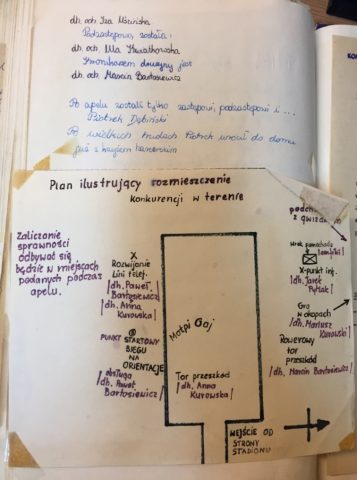 dh. och. Iza
Podzastępową, została:
dh. och. Ula Kwiatkowska
Kronikarzem drużyny jest
dh. och. Marcin Bartosiewicz
Po apelu zostali tylko zastępowi, podzastępowi i ...
Piotrek Dębiński
Po wielkich trudach Piotrek wrócił do domu
już z krzyżem harcerskim
Plan ilustrujący rozmieszczenie
Konkurencji w terenie
Zaliczanie
sprawności
odbywać się
będzie w miejscach
podanych podczas
apelu.
X
Rozwijanie
Lini telef.
/dh. Paweł
Bartosiewicz/
/dh. Anna
Kurowska/
PUNKT STARTOWY
BIEGU
NA
ORIENTACJE
/obsługa
dh. Paweł
Bartosiewicz/
Małpi Gaj
Tor przeszkód
/dh. Anna
Kurowska/
z
Wrak samochodu
X-punkt inf.
/dh. Jarek
Gra
w okopach
/dh. Mariusz
Kurowski/
Rowerowy
tor
przeszkód
/dh. Marcin Bartosiewicz/
WEJŚCIE OD
STRONY
STADIONU